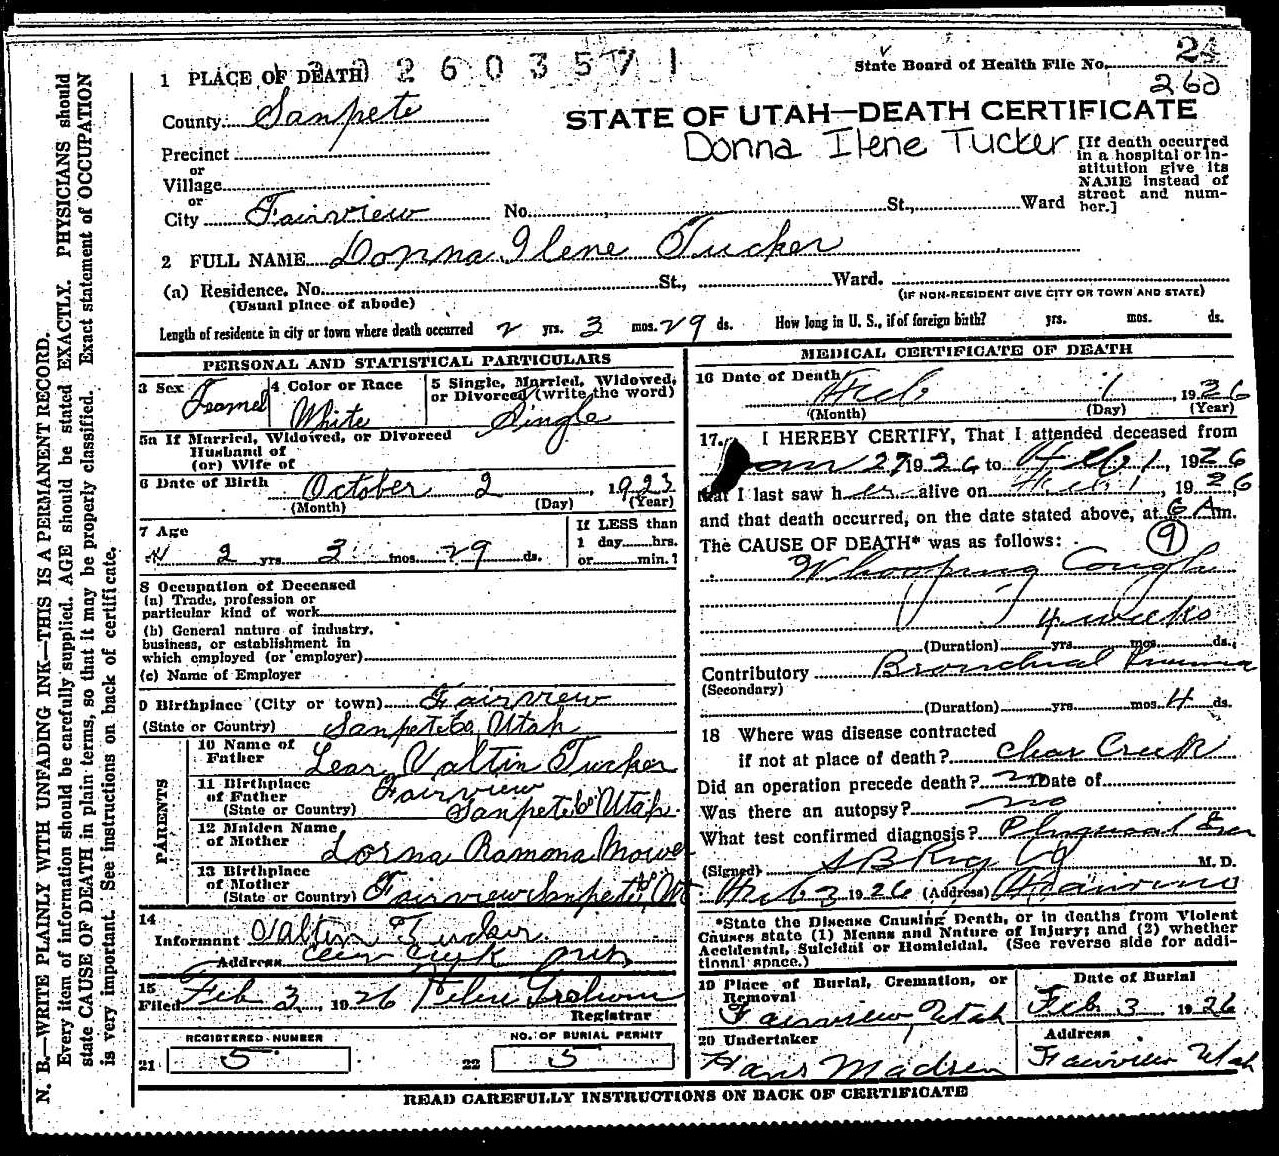 1 PLACE OF DEATH 2 6 0 3 5 7 1
State Board of Health File No. 24
260
County Sanpete
STATE OF UTAH—DEATH CERTIFICATE
Donna Ilene Tucker
[If death occurred in a hospital or institution give its NAME instead of street and number.]
Precinct
or
Village
or
City Fairview No. St., Ward
2 FULL NAME Donna Ilene Tucker
(a) Residence. No. St., Ward.
(Usual place of abode) (IF NON-RESIDENT GIVE CITY OR TOWN AND STATE)
Length of residence in city or town where death occurred 2 yrs. 3 mos. 29 ds. How long in U. S., if of foreign birth? yrs. mos. ds.
PERSONAL AND STATISTICAL PARTICULARS
3 Sex Femal
4 Color or Race White
5 Single, Married, Widowed, or Divorced (write the word) Single
5a If Married, Widowed, or Divorced
Husband of
(or) Wife of
6 Date of Birth October 2, 1923
(Month) (Day) (Year)
7 Age 2 yrs. 3 mos. 29 ds.
If LESS than
1 day hrs.
or min.?
8 Occupation of Deceased
(a) Trade, profession or
particular kind of work
(b) General nature of industry,
business, or establishment in
which employed (or employer)
(c) Name of Employer
9 Birthplace (City or town) Fairview
(State or Country) Sanpete Co Utah
PARENTS
10 Name of Father Valtin Tucker
11 Birthplace of Father (State or Country) Fairview
Sanpete Co Utah.
12 Maiden Name of Mother Lorna Ramona Mower
13 Birthplace of Mother (State or Country) Fairview Sanpete Co Ut
14
Informant Valtin Tucker
Address
15
Filed Feb 3 1926
Registrar
REGISTERED NUMBER
21 5
NO. OF BURIAL PERMIT
22 5
MEDICAL CERTIFICATE OF DEATH
16 Date of Death Feb 1, 1926
(Month) (Day) (Year)
17. I HEREBY CERTIFY, That I attended deceased from
Jan 27 1926 to Feb 1, 1926
that I last saw her alive on Feb 1, 1926,
and that death occurred, on the date stated above, at 6 A m.
The CAUSE OF DEATH* was as follows: 9
Whooping Cough
4 weeks
(Duration) yrs. mos. ds.
Contributory Bronchial
(Secondary)
(Duration) yrs. mos. 4 ds.
18 Where was disease contracted
if not at place of death? Creek
Did an operation precede death? no Date of
Was there an autopsy? no
What test confirmed diagnosis?
(Signed) M. D.
Feb 3 1926 (Address) Fairview
*State the Disease Causing Death, or in deaths from Violent
Causes state (1) Means and Nature of Injury; and (2) whether
Accidental, Suicidal or Homicidal. (See reverse side for addi-
tional space.)
19 Place of Burial, Cremation, or Removal
Fairview, Utah
Date of Burial
Feb. 3 1926
20 Undertaker
Hans Madsen
Address
Fairview Utah
READ CAREFULLY INSTRUCTIONS ON BACK OF CERTIFICATE
N. B.—WRITE PLAINLY WITH UNFADING INK—THIS IS A PERMANENT RECORD.
Every item of information should be carefully supplied. AGE should be stated EXACTLY. PHYSICIANS should
state CAUSE OF DEATH in plain terms, so that it may be properly classified. Exact statement of OCCUPATION
is very important. See instructions on back of certificate.